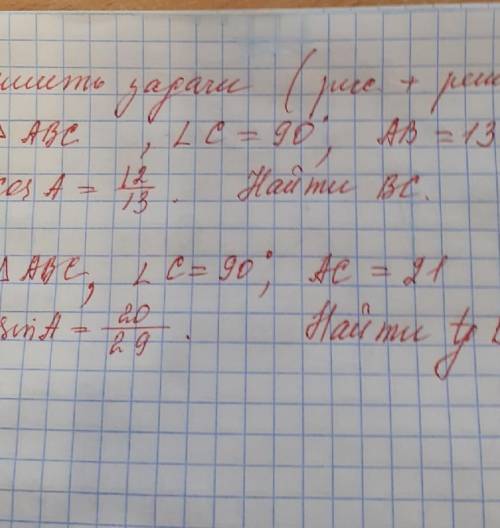 задачи (рис. +
ABC , ∠C = 90°, AB = 13
cos A = 12/13 . Найти BC.
Δ ABC, ∠C = 90°; AC = 21
sin A = 20/29 . Найти tg